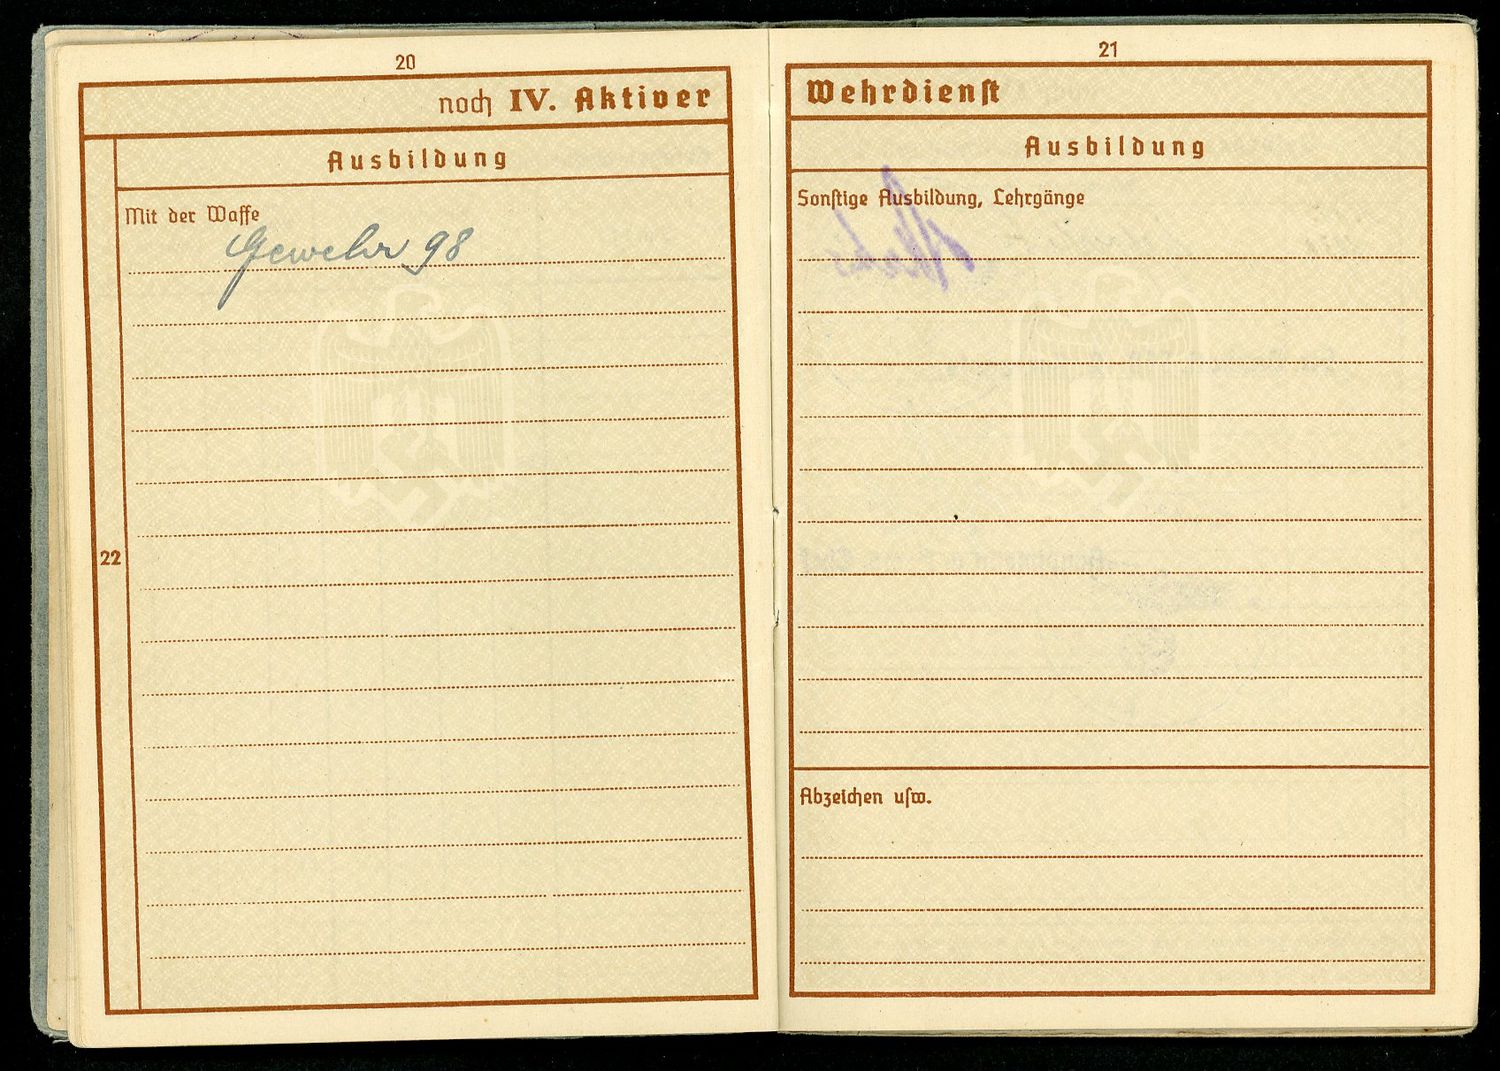 20
noch IV. Aktiver
Ausbildung
Mit der Waffe
Gewehr 98
22
21
Wehrdienst
Ausbildung
Sonstige Ausbildung, Lehrgänge
Abzeichen usw.